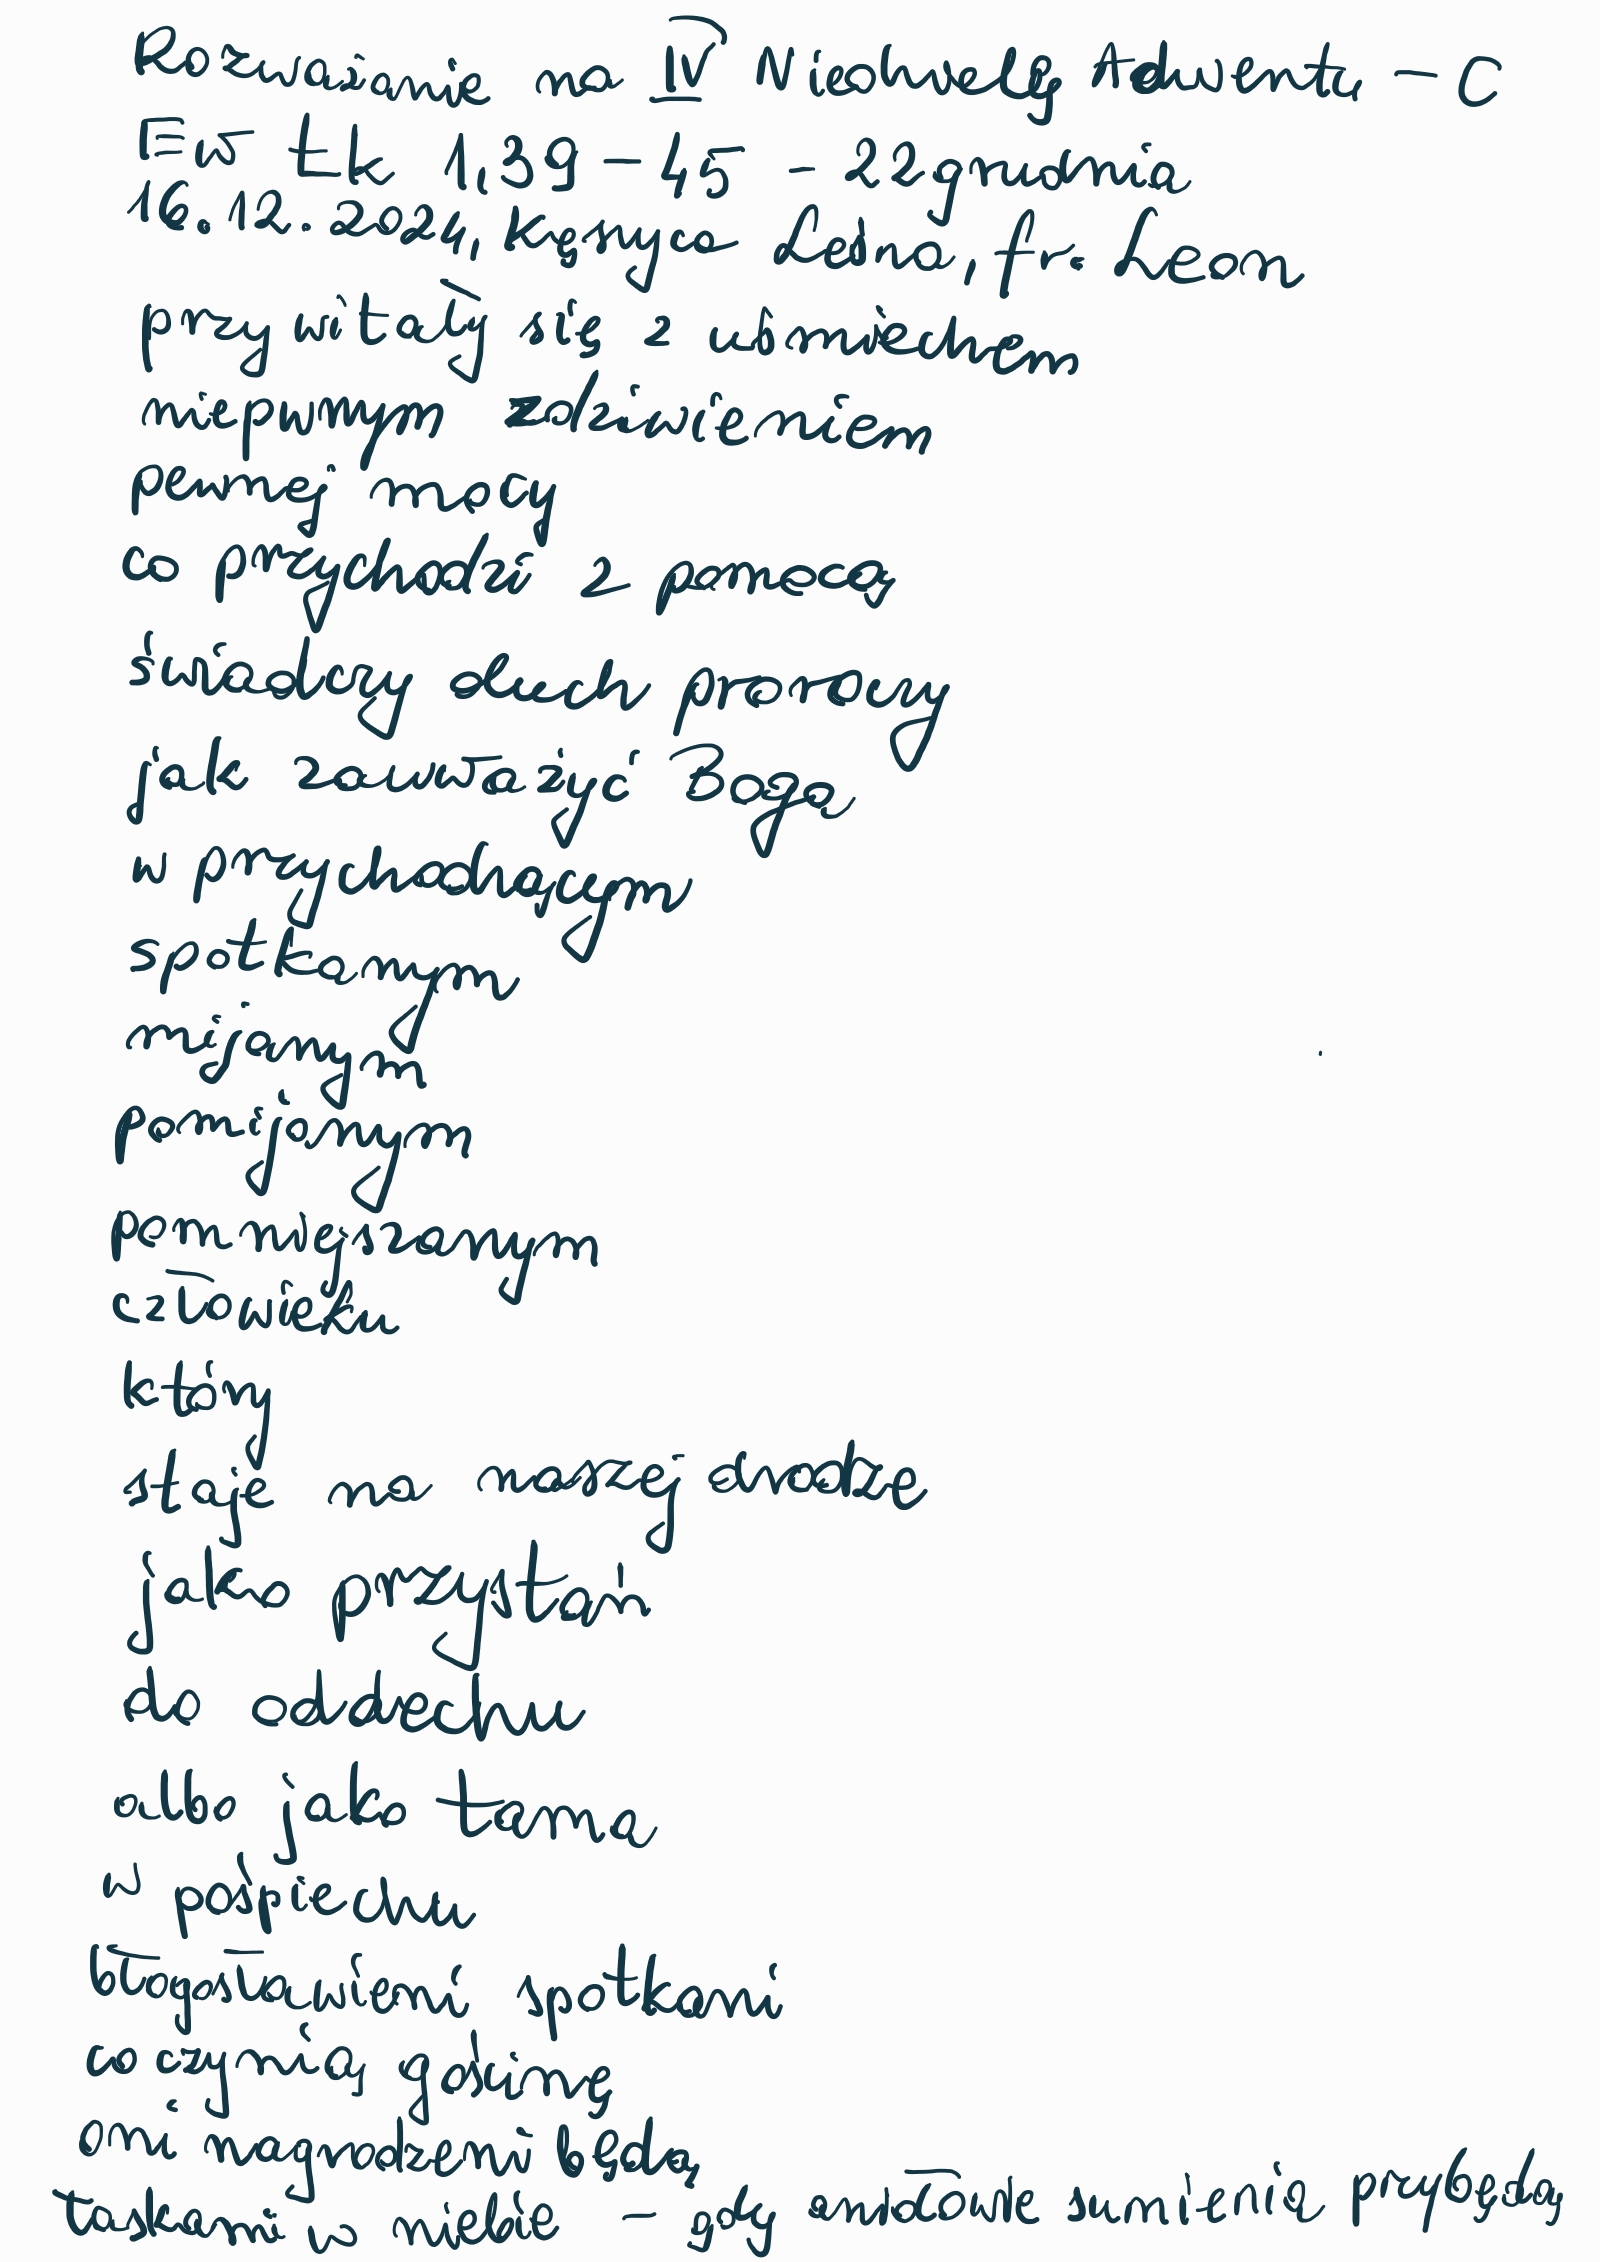 Rozważanie na IV Niedzielę Adwentu - C
Ew Łk 1,39-45 - 22 grudnia
16.12.2024, Kęsyca Leśna, fr. Leon
przywitały się z uśmiechem
niepwnym zdziwieniem
pewnej mocy
co przychodzi z pomocą
świadczy duch proroczy
jak zauważyć Boga
w przychodzącym
spotkanym
mijanym
pomijanym
pomniejszanym
człowieku
który
staje na naszej drodze
jako przystań
do oddechu
albo jako tama
w pośpiechu
błogosławieni spotkani
co czynią gościnę
oni nagrodzeni będą
łaskami w niebie - gdy aniołowie sumienia przybędą